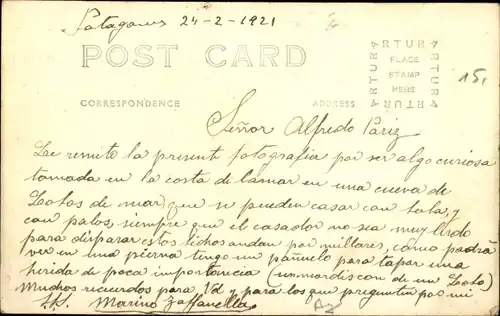 Patagones 24-2-1921
POST CARD
ARTURA ARTURA ARTURA ARTURA
PLACE
STAMP
HERE
15,
CORRESPONDENCE ADDRESS
Señor Alfredo Pariz
Le remito la present fotografia por ser algo curiosa
tomada en la costa de la mar en una cueva de
Lobos de mar, que se pueden casar con bala, y
con palos, siempre que el casador no sea muy lerdo
para disparar estos bichos andan por millares, como podrá
ver en una pierna tengo un pañuelo para tapar una
herida de poca importancia (un mordiscon de un Lobo)
Muchos recuerdos para Vd y para los que pregunten por mi
S.S. Marino Zaffanella